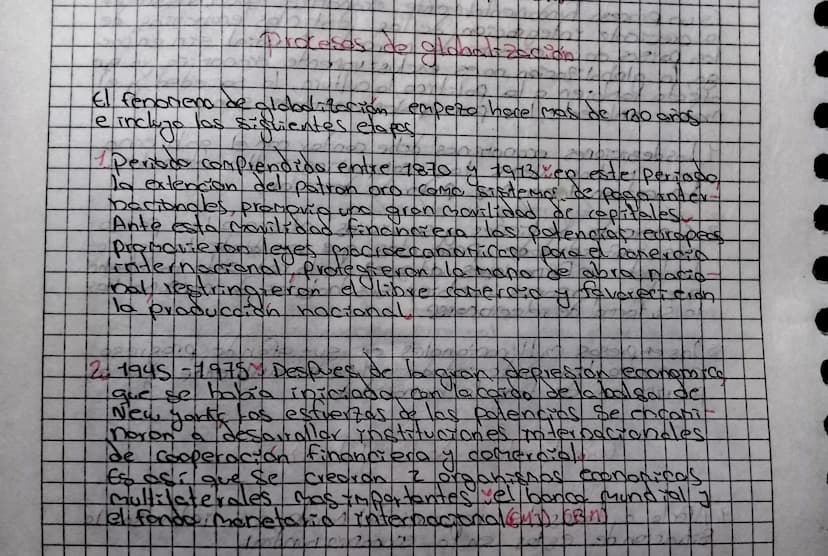 Procesos de globalización
El fenomeno de globalización empezo hace mas de 130 años
e incluye las siguientes etapas
1 Periodo comprendido entre 1870 y 1913 en este periodo
la extencion del patron oro como sistema de pago inter-
nacionales, promovio una gran movilidad de capitales.
Ante esta movilidad financiera las potencias europeas
promovieron leyes macroeconomicas para el comercio
internacional, protegieron la mano de obra nacio-
nal, restringieron el libre comercio y favorecieron
la producción nacional.
2. 1945 - 1975 Despues de la gran depresión economica
que se habia iniciado con la caida de la bolsa de
New york los esfuerzos de las potencias se encami-
naron a desarrollar instituciones internacionales
de cooperación financiera y comercial.
Es asi que se crearon 2 organismos economicos
multilaterales mas importantes el banco mundial y
el fondo monetario internacional (BM)